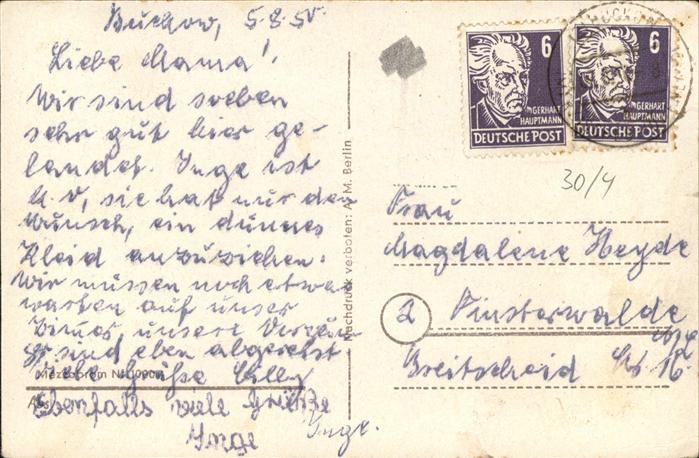 Buckow, 5.8.50.
Liebe Mama!
Wir sind soeben
sehr gut hier ge-
landet. Inge ist
k.v, sie hat nur den
Wunsch, ein dünnes
Kleid anzuziehen.
Wir müssen noch etwas
warten auf unser
unsere
sind eben abgereist
Viele Grüße Cilly
Ebenfalls viele Grüße
Inge
Inge.
Nachdruck verboten: A. M. Berlin
6
GERHART
HAUPTMANN
DEUTSCHE POST
6
GERHART
HAUPTMANN
DEUTSCHE POST
30/4
Frau
Magdalene Heyde
2 Finsterwalde
Breitscheid Str. 16